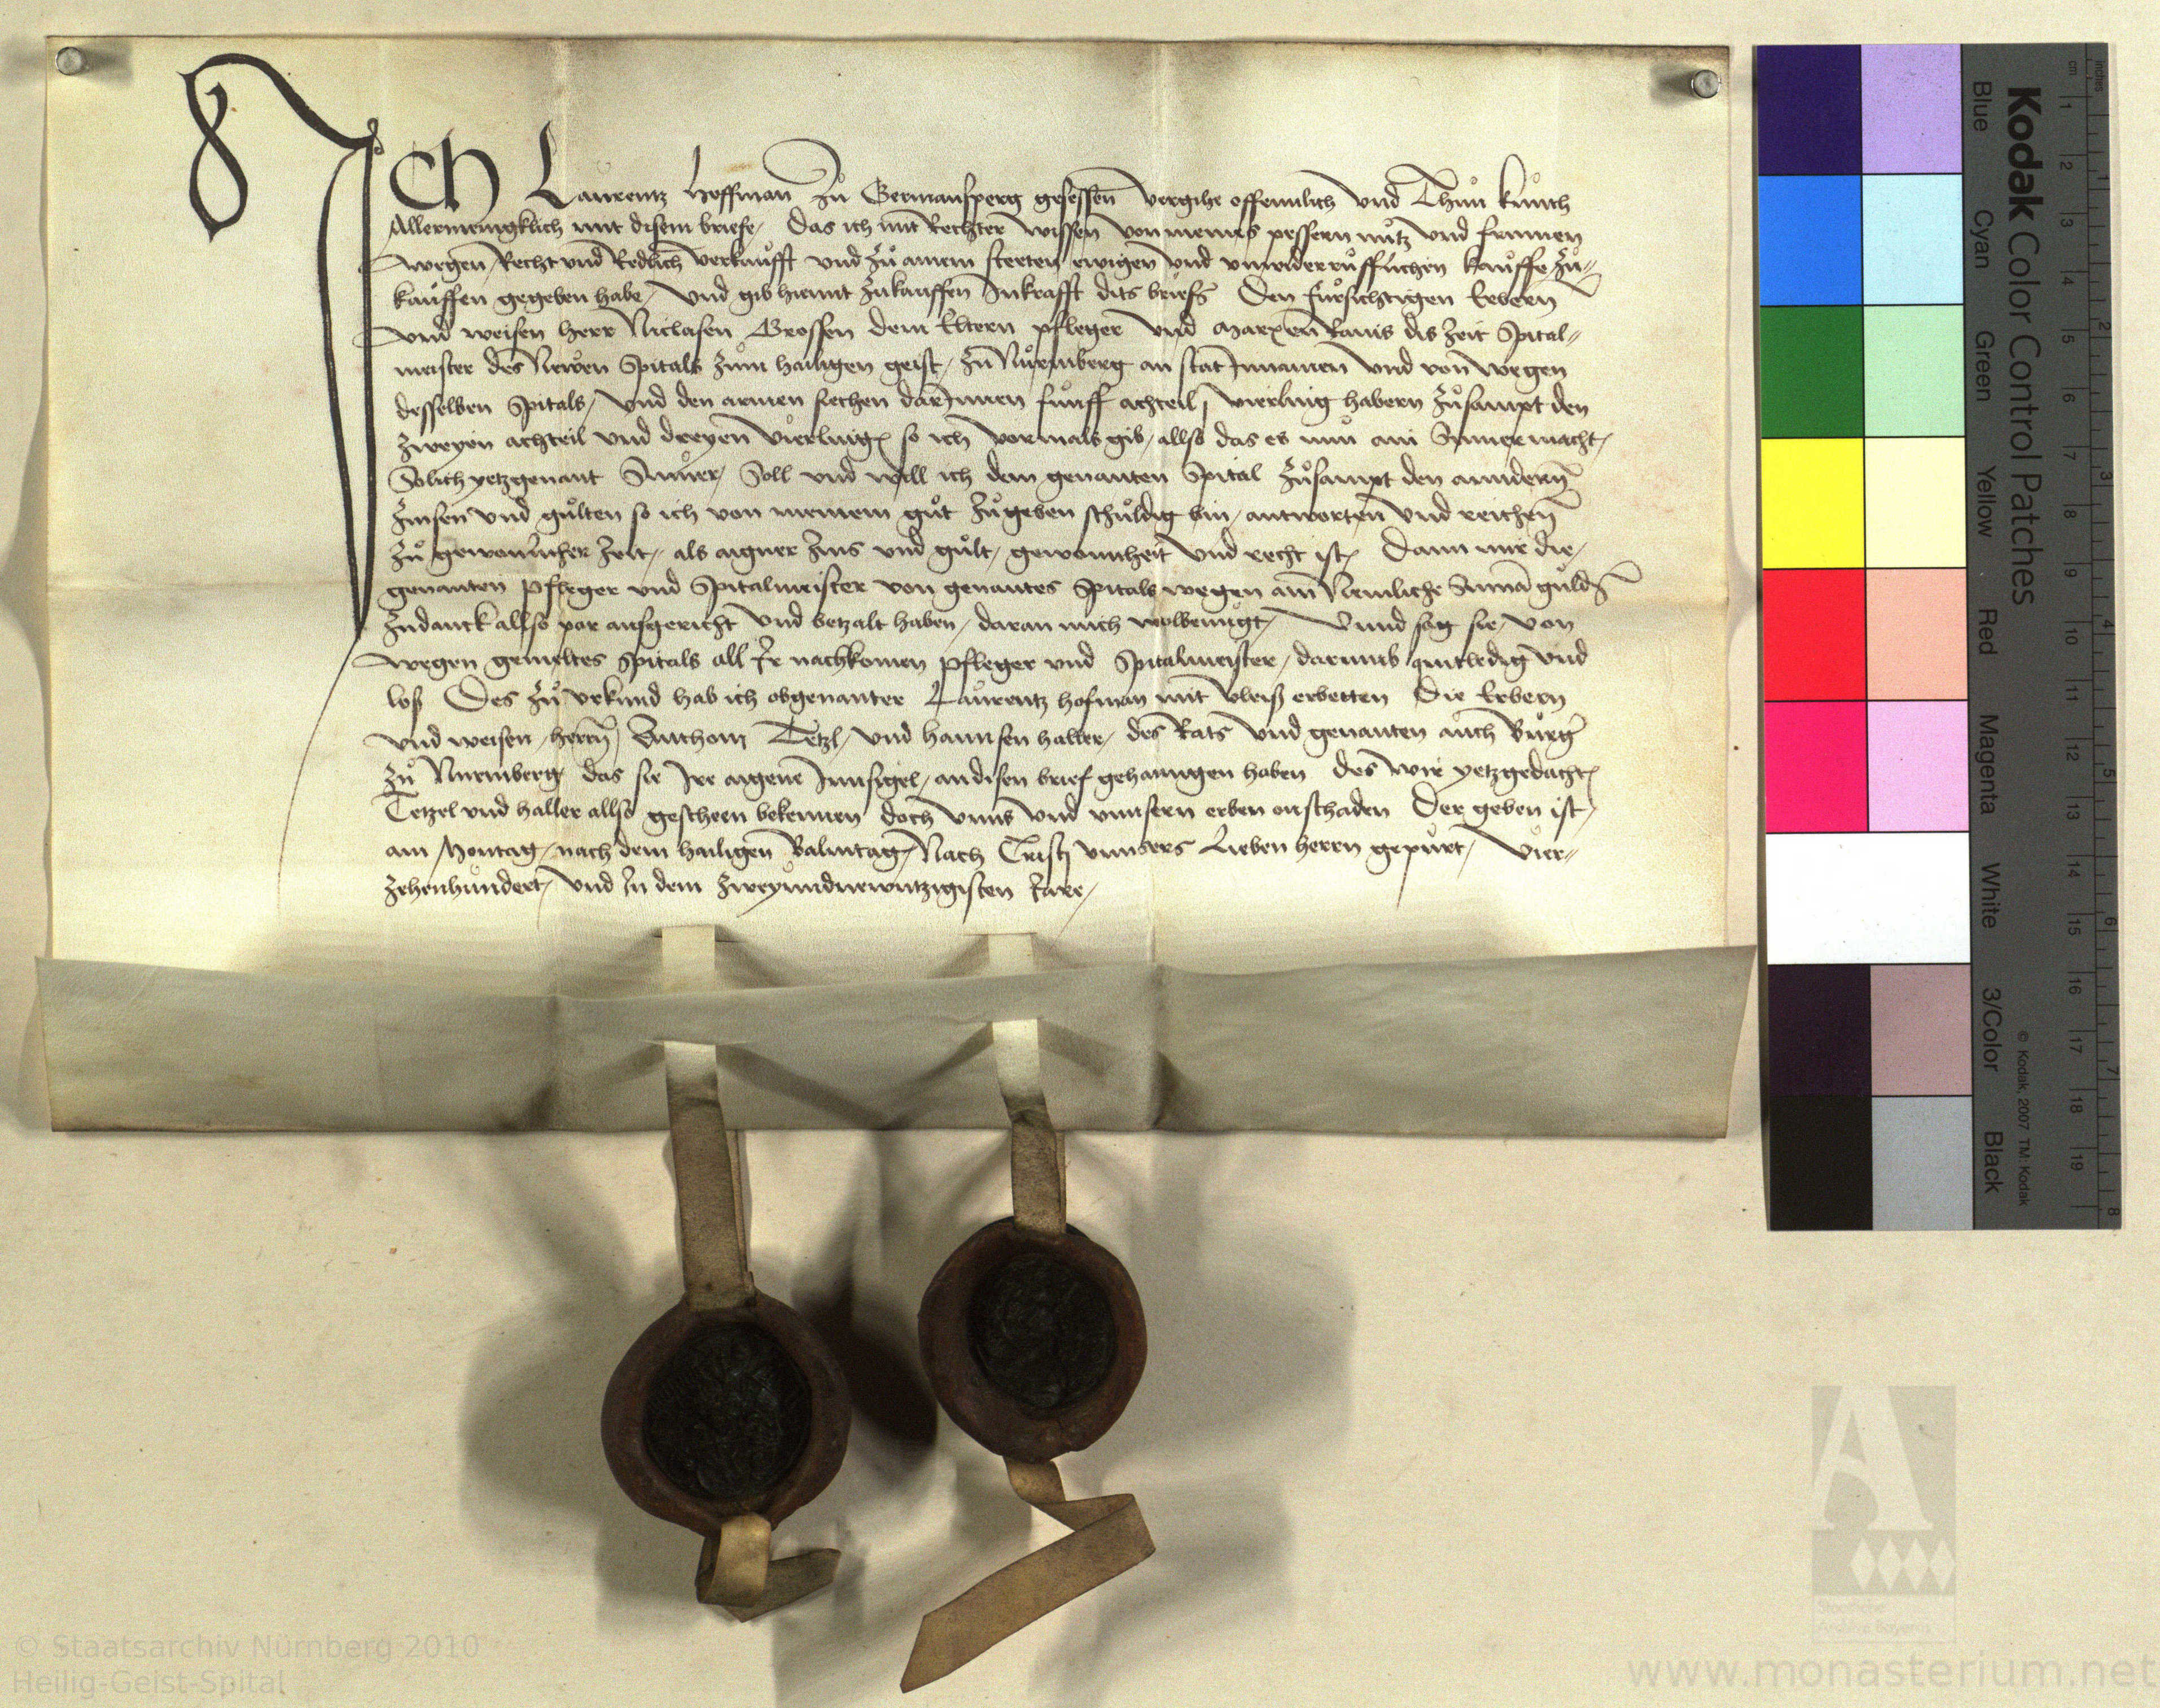 Ich Laurentz Hoffman zu Germansperg gesessen vergihe offennlich vnd Thun kunth
Allermenigklich mit disem briefe / Das ich mit Rechter wissen von meins pessern nutz vnd frumen
wegen / Recht vnd Redlich verkaufft vnd zu ainem steeten ewigen vnd vnwiderrufflichen kauffe zu-
kauffen gegeben habe / vnd gib hiemit zukauffen Inkrafft dits briefs Den fursichtigen Erbern
vnd weisen herr Niclasen Grossen dem Eltern pfleger vnd Marxen dis zeit Spital-
meister des Newen Spitals zum hailigen geist / zu Nuremberg an stat Innamen vnd von wegen
desselben Spitals / vnd den armen siechen darInnen funff achteil vierling habern zusampt den
zweyen achteil vnd dreyen vierling so ich vormals gib / allso das es nun ain Sumer macht /
Solich yetzgenant Sumer / Soll vnd will ich dem genanten Spital zusampt den anndern
zinsen vnd gulten so ich von meinem gut zugeben schuldig bin / antworten vnd reichen
zu gewonlicher zeit / als aigner zins vnd gult / gewonnheit vnd recht ist / Dann mir die /
genanten pfleger vnd Spitalmeister von genantes Spitals wegen ain Nemliche Suma guld
zudanck allso par ausgericht vnd betzalt haben / daran mich wolbenugt / Vnnd sag sie / von
wegen gemeltes spitals all Ir nachkomen pfleger vnd Spitalmeister / darumb quitledig vnd
loß Des zu vrkund hab ich obgenanter Laurentz hofman mit vleis erbetten Die Erbern
vnd weisen / herrn / Anthoni Tetzl / vnd hannsen haller / des Rats vnd genanten auch Burger
zu Nurmberg das sie Ire aigene Innsigel / an disen brief gehanngen haben des wir yetzgedacht
Tetzel vnd haller allso gescheen bekennen doch vnns vnd vnnsern erben onschaden Der geben ist /
am Montag / nach dem hailigen Balmtag / Nach Cristj vnnsers Lieben herrn gepurt / Vier-
zehenhundert / vnd In dem zweyundnewntzigisten Jare /
Kodak Color Control Patches
Blue Cyan Green Yellow Red Magenta White 3/Color Black
© Kodak, 2007 TM: Kodak
cm 1 2 3 4 5 6 7 8 9 10 11 12 13 14 15 16 17 18 19
inches 1 2 3 4 5 6 7 8
Staatliche
Archive Bayerns
© Staatsarchiv Nürnberg 2010
Heilig-Geist-Spital
www.monasterium.net